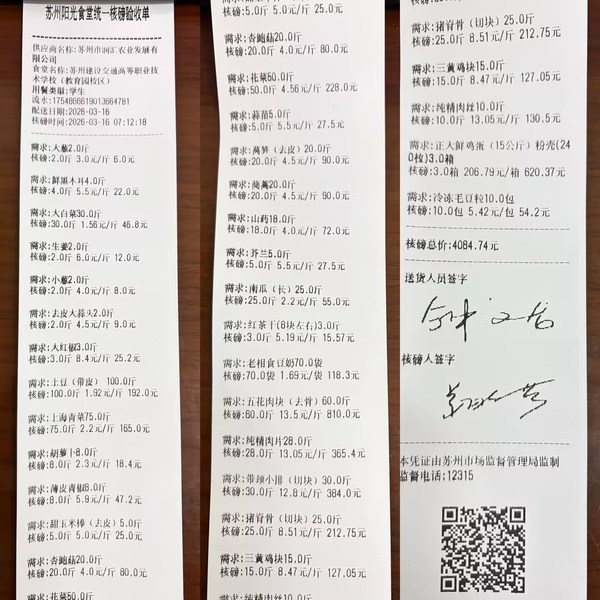 苏州阳光食堂统一核磅验收单
供应商名称:苏州市润汇农业发展有
限公司
食堂名称:苏州建设交通高等职业技
术学校（教育园校区）
用餐类型:学生
流水:1754866619013664781
配送日期:2026-03-16
核磅时间:2026-03-16 07:12:18
需求:大葱2.0斤
核磅:2.0斤 3.0元/斤 6.0元
需求:鲜黑木耳4.0斤
核磅:4.0斤 5.5元/斤 22.0元
需求:大白菜30.0斤
核磅:30.0斤 1.56元/斤 46.8元
需求:生姜2.0斤
核磅:2.0斤 6.0元/斤 12.0元
需求:小葱2.0斤
核磅:2.0斤 4.0元/斤 8.0元
需求:去皮大蒜头2.0斤
核磅:2.0斤 4.5元/斤 9.0元
需求:大红椒3.0斤
核磅:3.0斤 8.4元/斤 25.2元
需求:土豆（带皮）100.0斤
核磅:100.0斤 1.92元/斤 192.0元
需求:上海青菜75.0斤
核磅:75.0斤 2.2元/斤 165.0元
需求:胡萝卜8.0斤
核磅:8.0斤 2.3元/斤 18.4元
需求:薄皮青椒8.0斤
核磅:8.0斤 5.9元/斤 47.2元
需求:甜玉米棒（去皮）5.0斤
核磅:5.0斤 5.0元/斤 25.0元
需求:杏鲍菇20.0斤
核磅:20.0斤 4.0元/斤 80.0元
需求:花菜50.0斤
核磅:5.0斤 5.0元/斤 25.0元
需求:杏鲍菇20.0斤
核磅:20.0斤 4.0元/斤 80.0元
需求:花菜50.0斤
核磅:50.0斤 4.56元/斤 228.0元
需求:蒜苗5.0斤
核磅:5.0斤 5.5元/斤 27.5元
需求:莴笋（去皮）20.0斤
核磅:20.0斤 4.5元/斤 90.0元
需求:茼蒿20.0斤
核磅:20.0斤 4.5元/斤 90.0元
需求:山药18.0斤
核磅:18.0斤 4.0元/斤 72.0元
需求:芥兰5.0斤
核磅:5.0斤 5.5元/斤 27.5元
需求:南瓜（长）25.0斤
核磅:25.0斤 2.2元/斤 55.0元
需求:红茶干(8块左右)3.0斤
核磅:3.0斤 5.19元/斤 15.57元
需求:老相食豆奶70.0袋
核磅:70.0袋 1.69元/袋 118.3元
需求:五花肉块（去骨）60.0斤
核磅:60.0斤 13.5元/斤 810.0元
需求:纯精肉片28.0斤
核磅:28.0斤 13.05元/斤 365.4元
需求:带颈小排（切块）30.0斤
核磅:30.0斤 12.8元/斤 384.0元
需求:猪脊骨（切块）25.0斤
核磅:25.0斤 8.51元/斤 212.75元
需求:三黄鸡块15.0斤
核磅:15.0斤 8.47元/斤 127.05元
需求:纯精肉丝10.0斤
需求:猪脊骨（切块）25.0斤
核磅:25.0斤 8.51元/斤 212.75元
需求:三黄鸡块15.0斤
核磅:15.0斤 8.47元/斤 127.05元
需求:纯精肉丝10.0斤
核磅:10.0斤 13.05元/斤 130.5元
需求:正大鲜鸡蛋（15公斤）粉壳(24
0枚)3.0箱
核磅:3.0箱 206.79元/箱 620.37元
需求:冷冻毛豆粒10.0包
核磅:10.0包 5.42元/包 54.2元
核磅总价:4084.74元
送货人员签字
核磅人签字
本凭证由苏州市场监督管理局监制
监督电话:12315